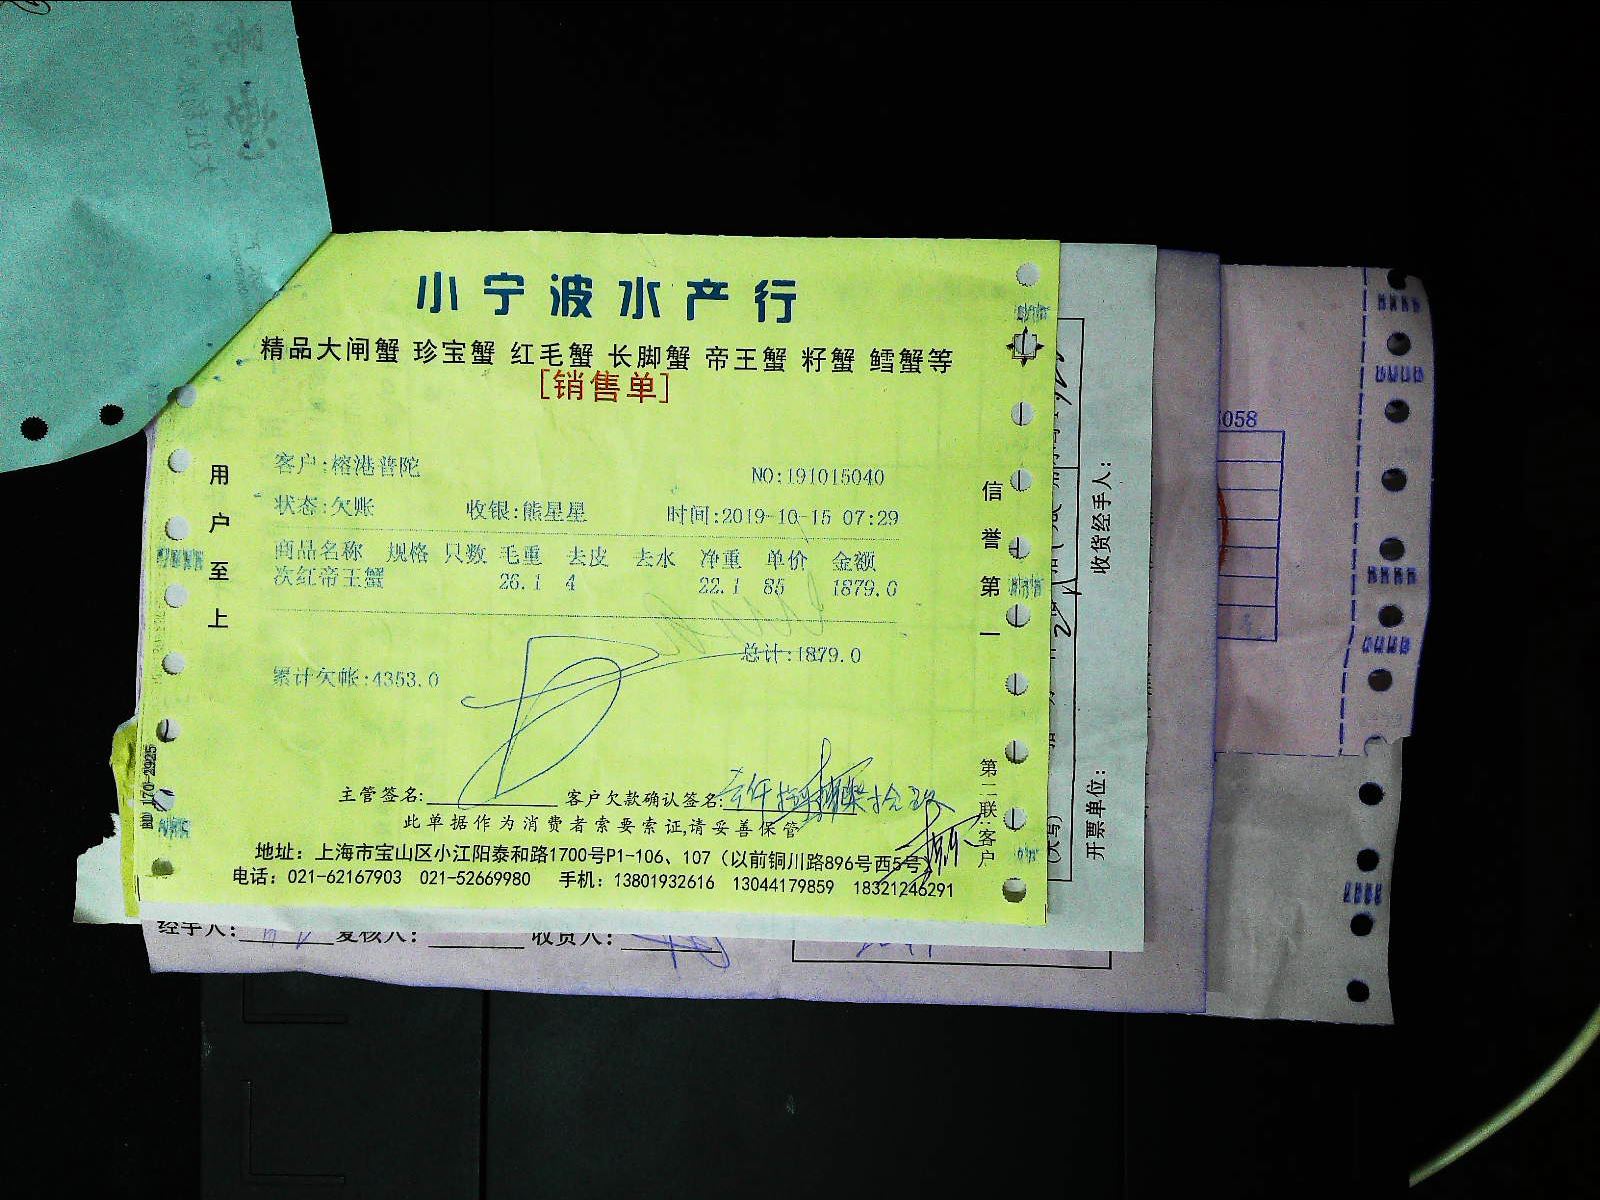 小宁波水产行
精品大闸蟹 珍宝蟹 红毛蟹 长脚蟹 帝王蟹 籽蟹 鳕蟹等
[销售单]
客户:榕港普陀 NO:191015040
状态:欠账 收银:熊星星 时间:2019-10-15 07:29
商品名称 规格 只数 毛重 去皮 去水 净重 单价 金额
次红帝王蟹 26.1 4 22.1 85 1879.0
总计:1879.0
累计欠帐:4353.0
主管签名: 客户欠款确认签名:
此单据作为消费者索要索证,请妥善保管
地址：上海市宝山区小江阳泰和路1700号P1-106、107（以前铜川路896号西5号
电话：021-62167903 021-52669980 手机：13801932616 13044179859 18321246291
用户至上
信誉第一
第二联:客户
170-2925
收货经手人：
开票单位：
(大写)
058
经手人： 复核人： 收货人：